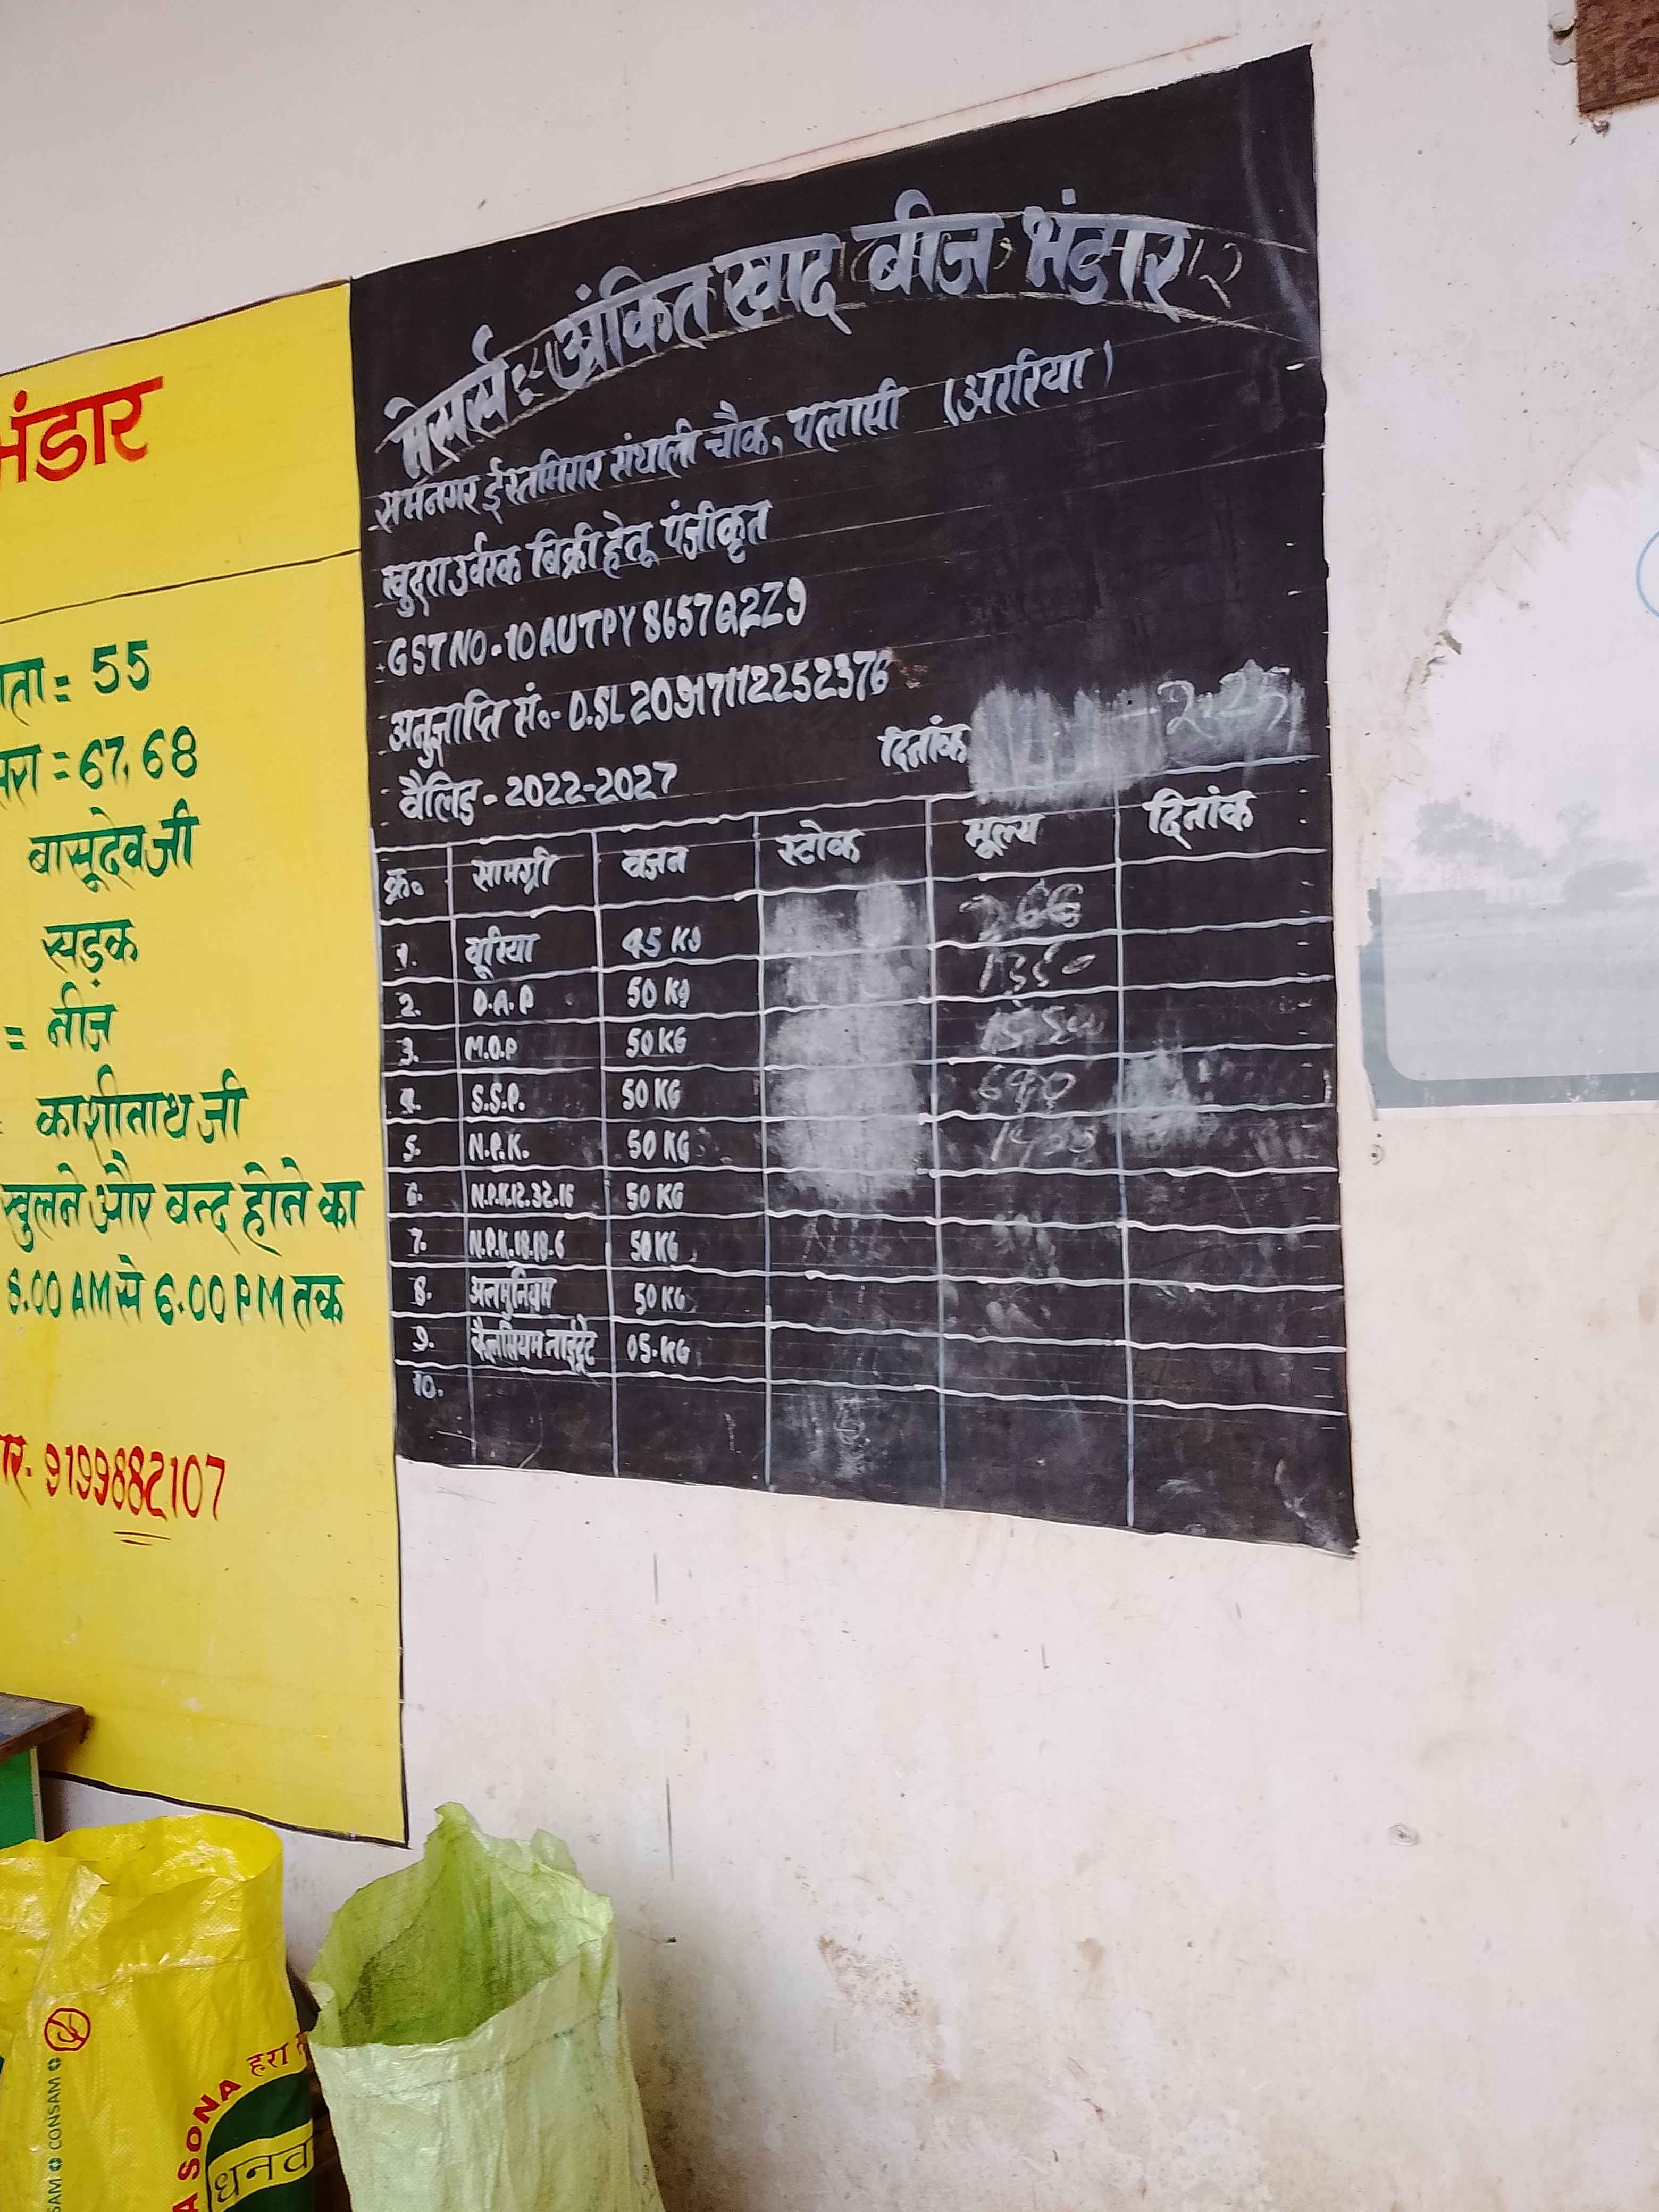 भंडार
55
= 67,68
बासूदेव जी
सड़क
= नीज
काशीनाथ जी
खुलने और बन्द होने का
8.00 AM से 6.00 PM तक
9199882107
मेसर्स :- अंकित खाद बीज भंडार
ईस्तमिरार संथाली चौक, पलासी (अररिया)
खुदरा उर्वरक बिक्री हेतू पंजीकृत
GST NO - 10AUTPY8657Q2Z9
अनुज्ञाप्ति सं॰- D.SL20917112252376
वैलिड - 2022-2027 दिनांक
क्र॰ सामग्री वजन स्टोक मूल्य दिनांक
1. यूरिया 45 KG 266
2. D.A.P 50 KG 1350
3. M.O.P 50 KG
4. S.S.P. 50 KG
5. N.P.K. 50 KG
6. N.P.K.12.32.16 50 KG
7. N.P.K.18.18.6 50 KG
8. अलमुनियम 50 KG
9. कैलसियम नाईट्रेट 05.KG
10.
SONA हरा
धनव
CONSAM